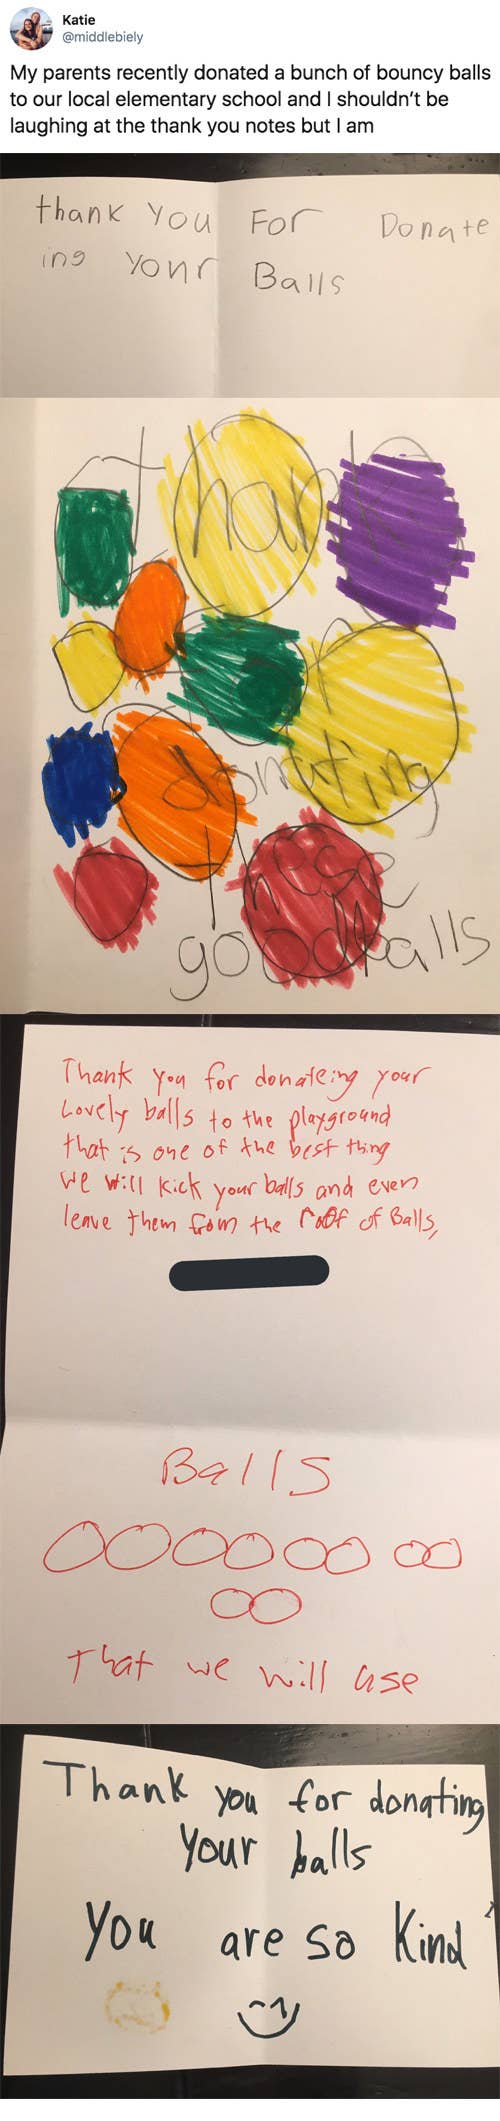 Katie
@middlebiely
My parents recently donated a bunch of bouncy balls
to our local elementary school and I shouldn't be
laughing at the thank you notes but I am
thank You For Donate
ing your Balls
thank
for
donating
these
good balls
Thank you for donateing your
Lovely balls to the playground
that is one of the best thing
we will kick your balls and even
leave them from the roof of Balls,
Balls
That we will use
Thank you for donating
Your balls
You are so kind